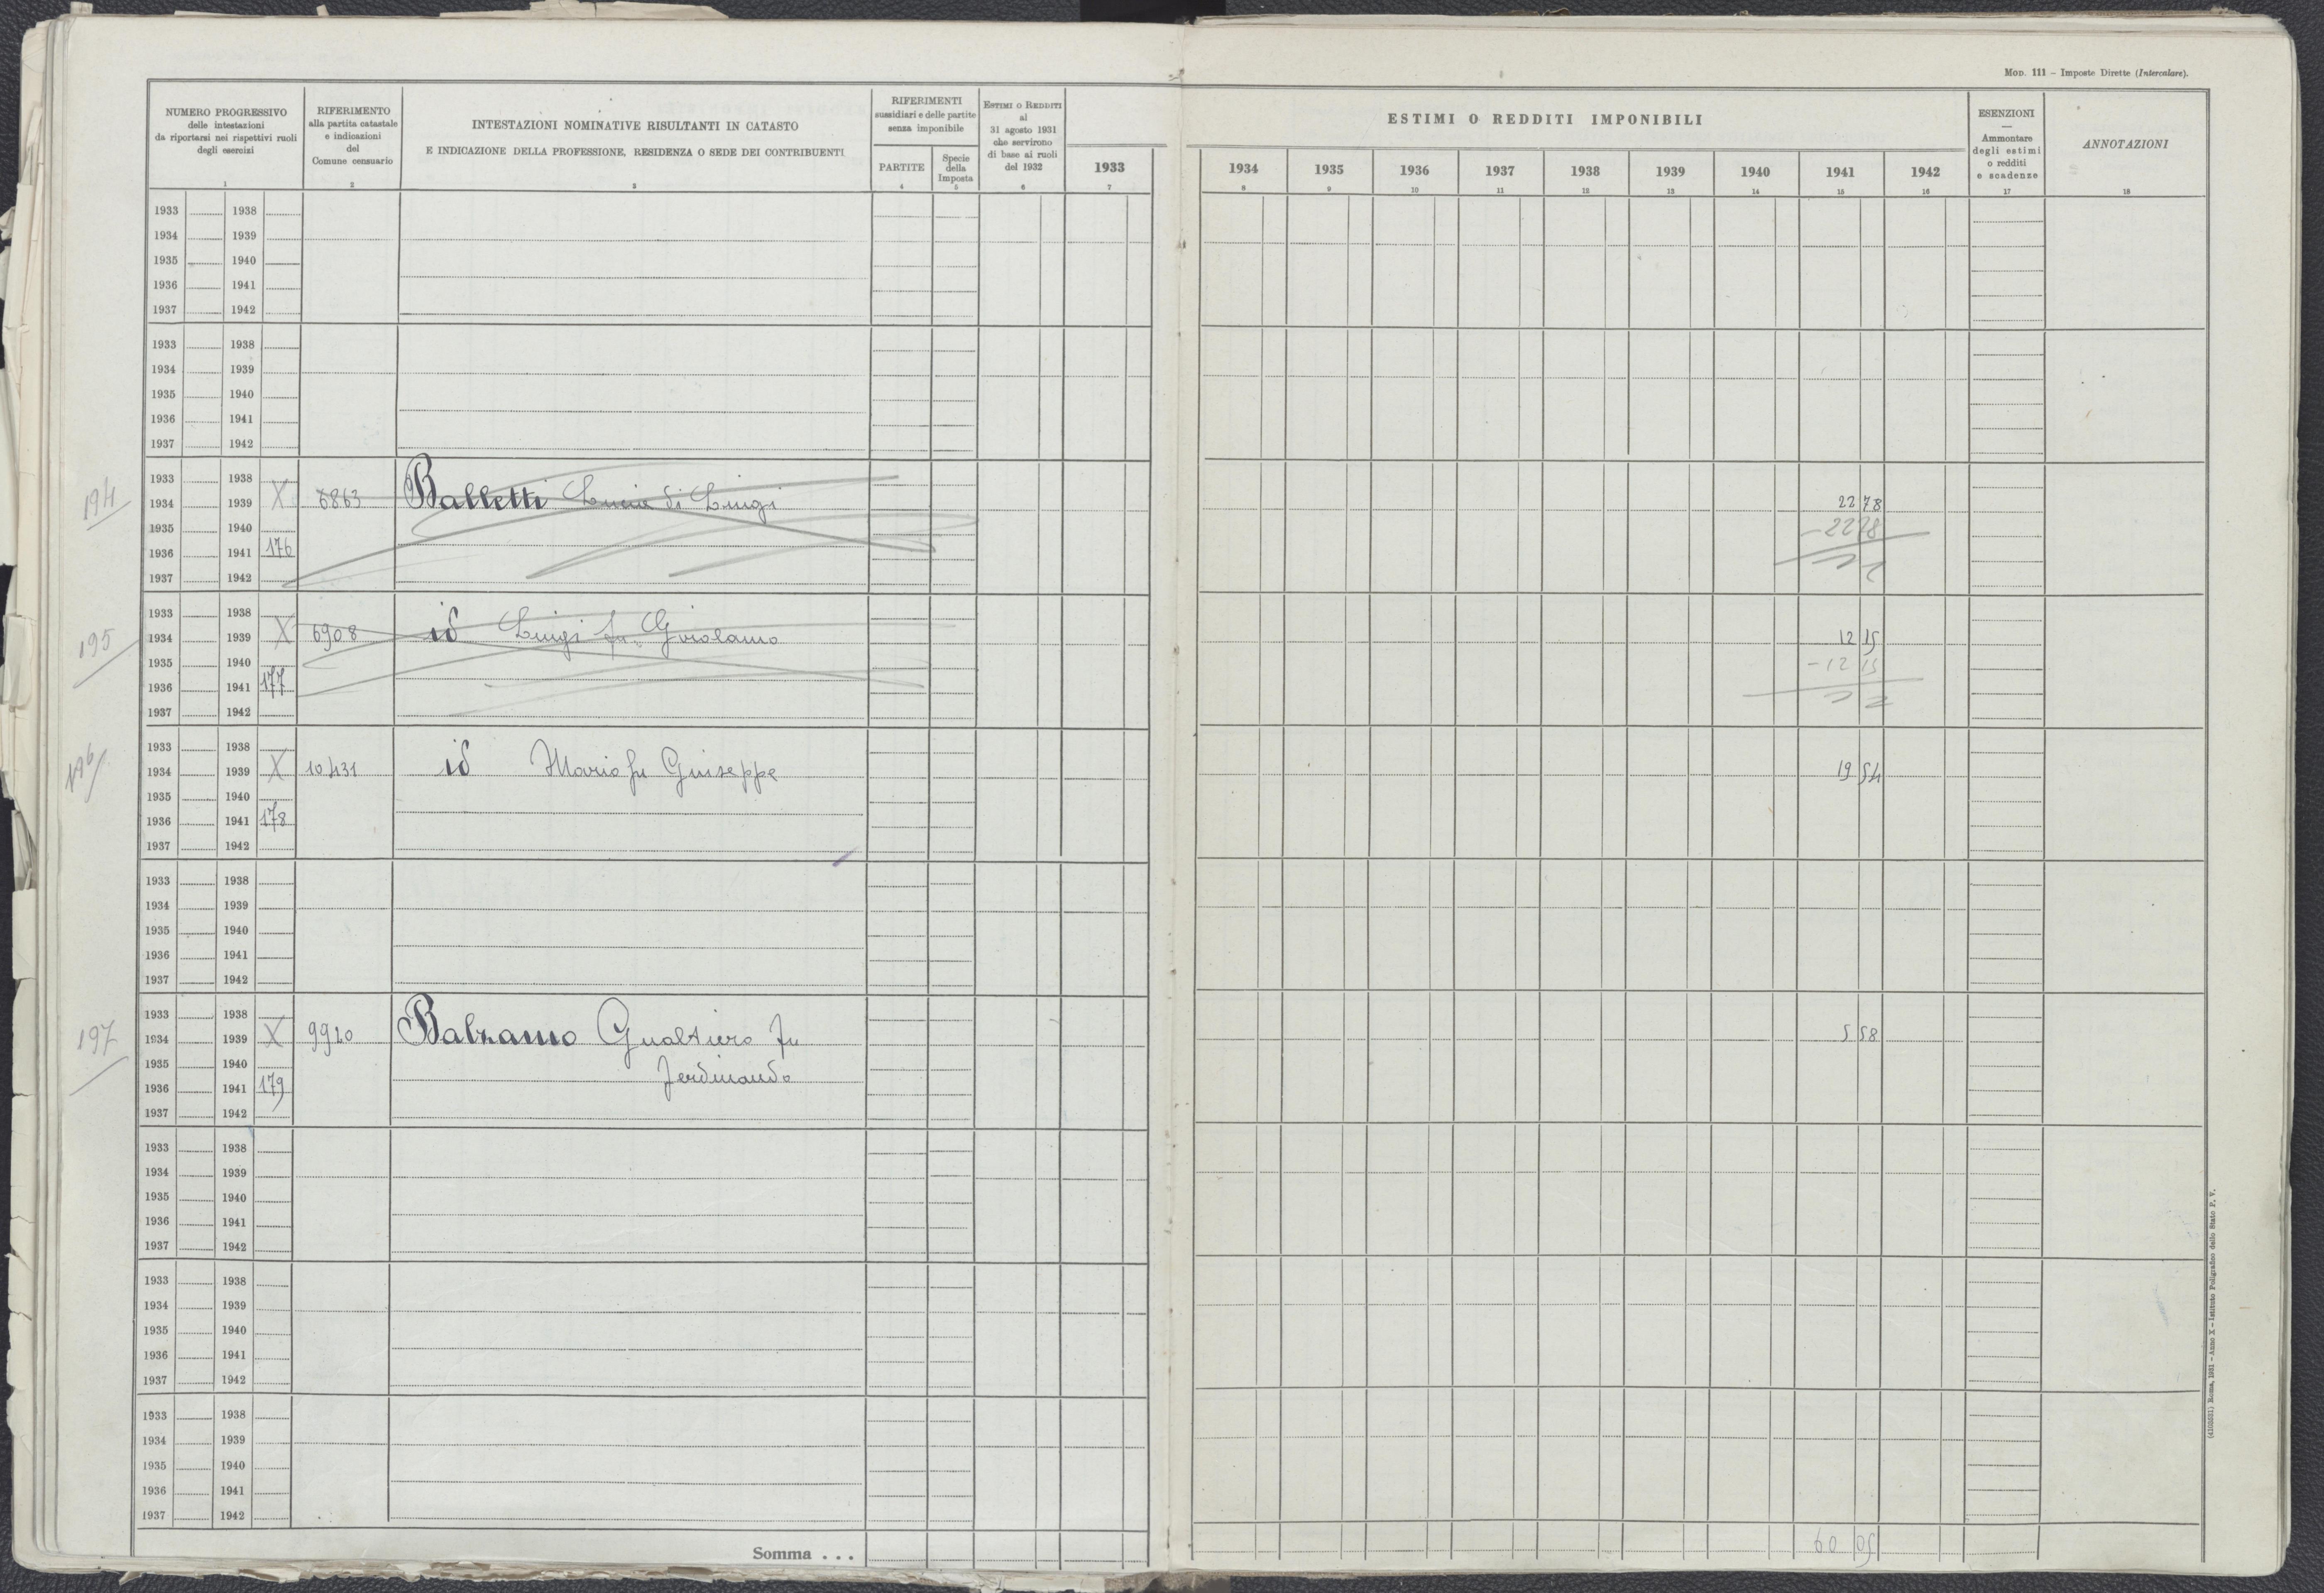 Mod. 111 – Imposte Dirette (Intercalare).
NUMERO PROGRESSIVO
delle intestazioni
da riportarsi nei rispettivi ruoli
degli esercizi
1
RIFERIMENTO
alla partita catastale
e indicazioni
del
Comune censuario
2
INTESTAZIONI NOMINATIVE RISULTANTI IN CATASTO
E INDICAZIONE DELLA PROFESSIONE, RESIDENZA O SEDE DEI CONTRIBUENTI
3
RIFERIMENTI
sussidiari e delle partite
senza imponibile
PARTITE
4
Specie
della
Imposta
5
Estimi o Redditi
al
31 agosto 1931
che servirono
di base ai ruoli
del 1932
6
1933
7
ESTIMI O REDDITI IMPONIBILI
1934 1935 1936 1937 1938 1939 1940 1941 1942
8 9 10 11 12 13 14 15 16
ESENZIONI
—
Ammontare
degli estimi
o redditi
e scadenze
17
ANNOTAZIONI
18
1933 1938
1934 1939
1935 1940
1936 1941
1937 1942
1933 1938
1934 1939
1935 1940
1936 1941
1937 1942
1933 1938
194 1934 1939 X 6863 Balletti Lucia di Luigi 22 78
1935 1940 -22 78
1936 1941 176
1937 1942
1933 1938
195 1934 1939 X 6908 id Luigi fu Girolamo 12 15
1935 1940 -12 15
1936 1941 177
1937 1942
1933 1938
196 1934 1939 X 10431 id Mario fu Giuseppe 19 54
1935 1940
1936 1941 178
1937 1942
1933 1938
1934 1939
1935 1940
1936 1941
1937 1942
1933 1938
197 1934 1939 X 9920 Balzamo Gualtiero fu 5 58
1935 1940 Ferdinando
1936 1941 179
1937 1942
1933 1938
1934 1939
1935 1940
1936 1941
1937 1942
1933 1938
1934 1939
1935 1940
1936 1941
1937 1942
1933 1938
1934 1939
1935 1940
1936 1941
1937 1942
Somma . . . 60 05